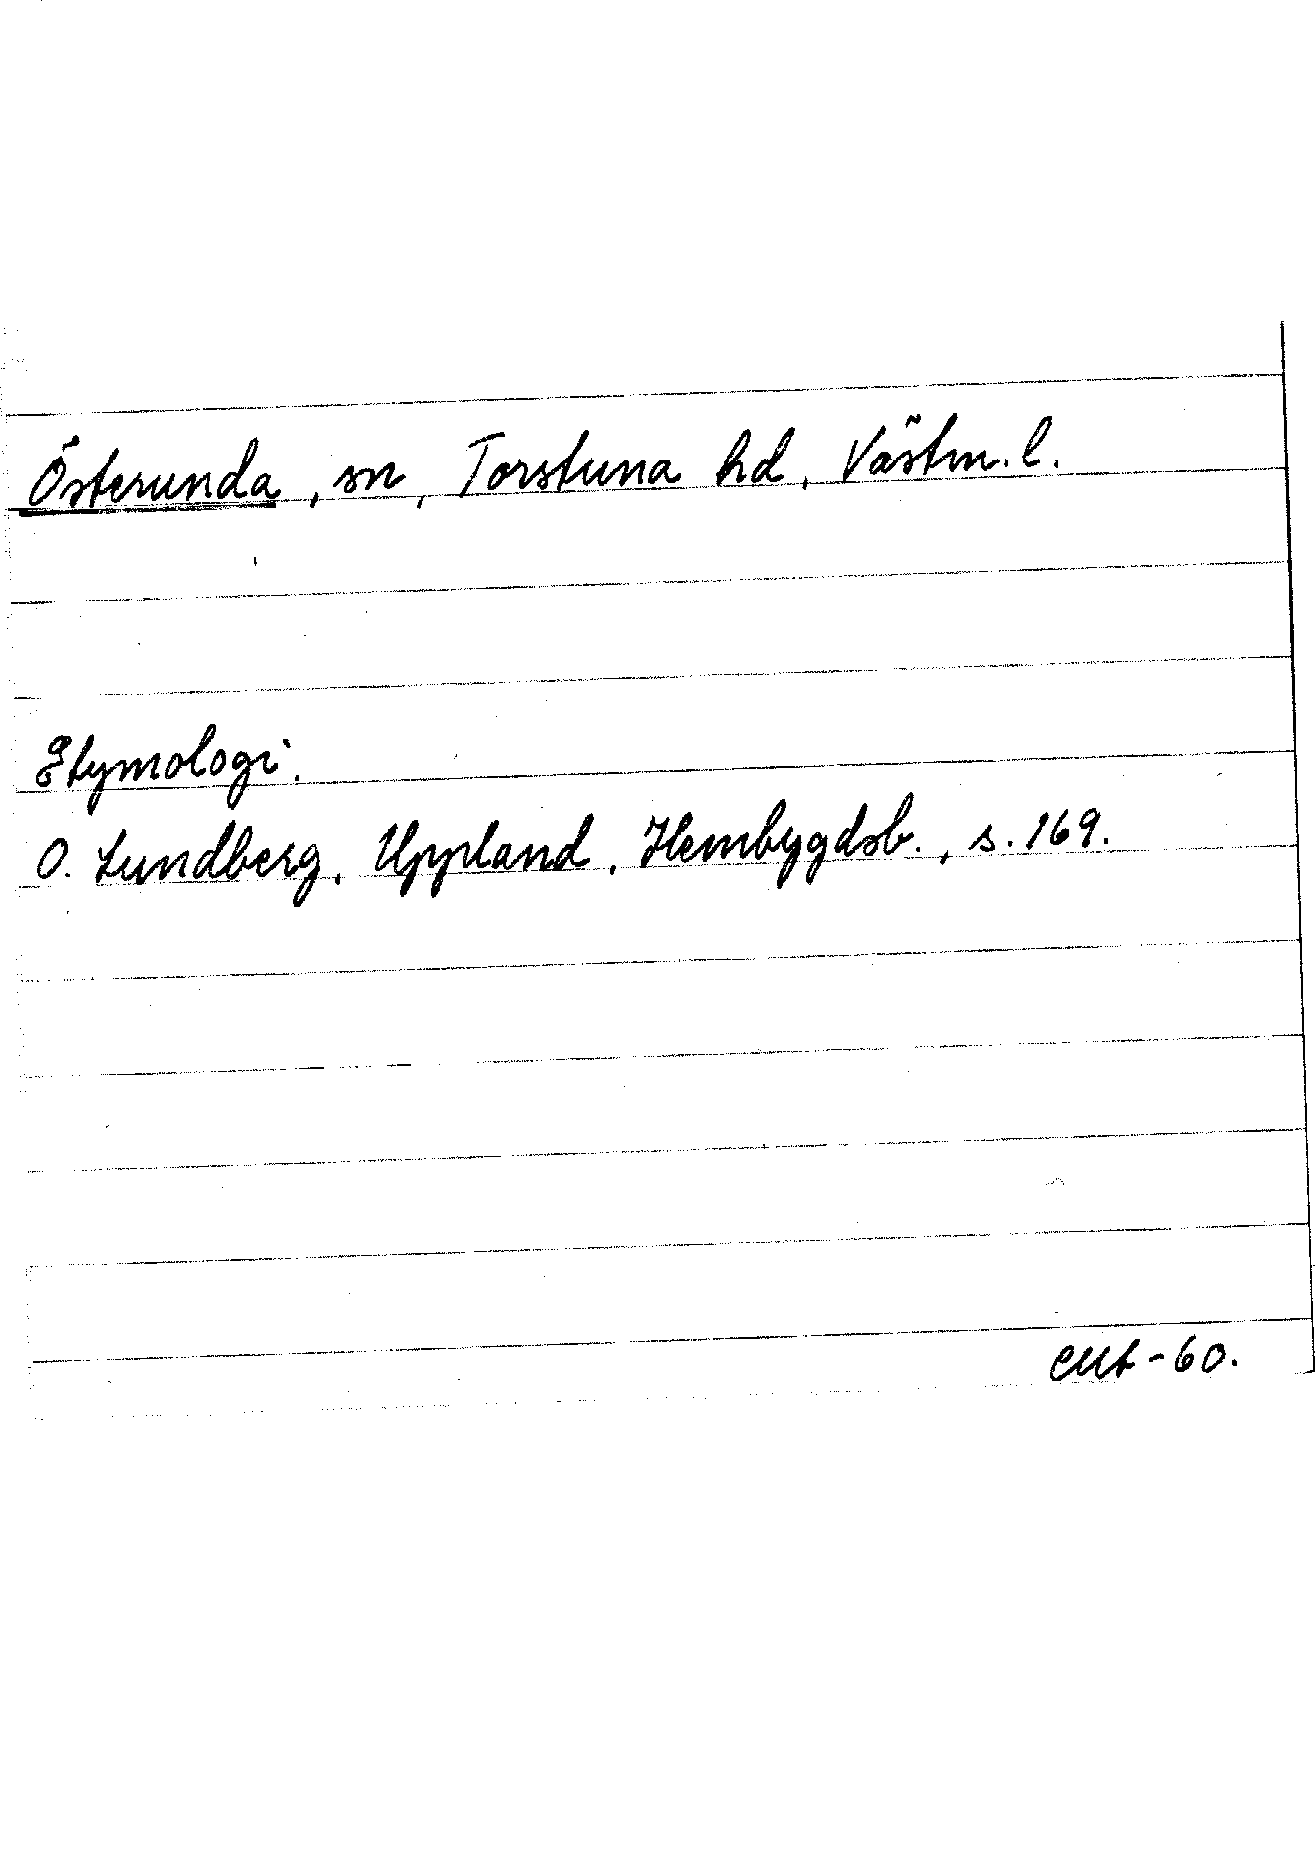 Österunda, sn, Torstuna hd, Västm. l.
Etymologi.
O. Lundberg, Uppland, Hembygdsb., s. 169.
-60.